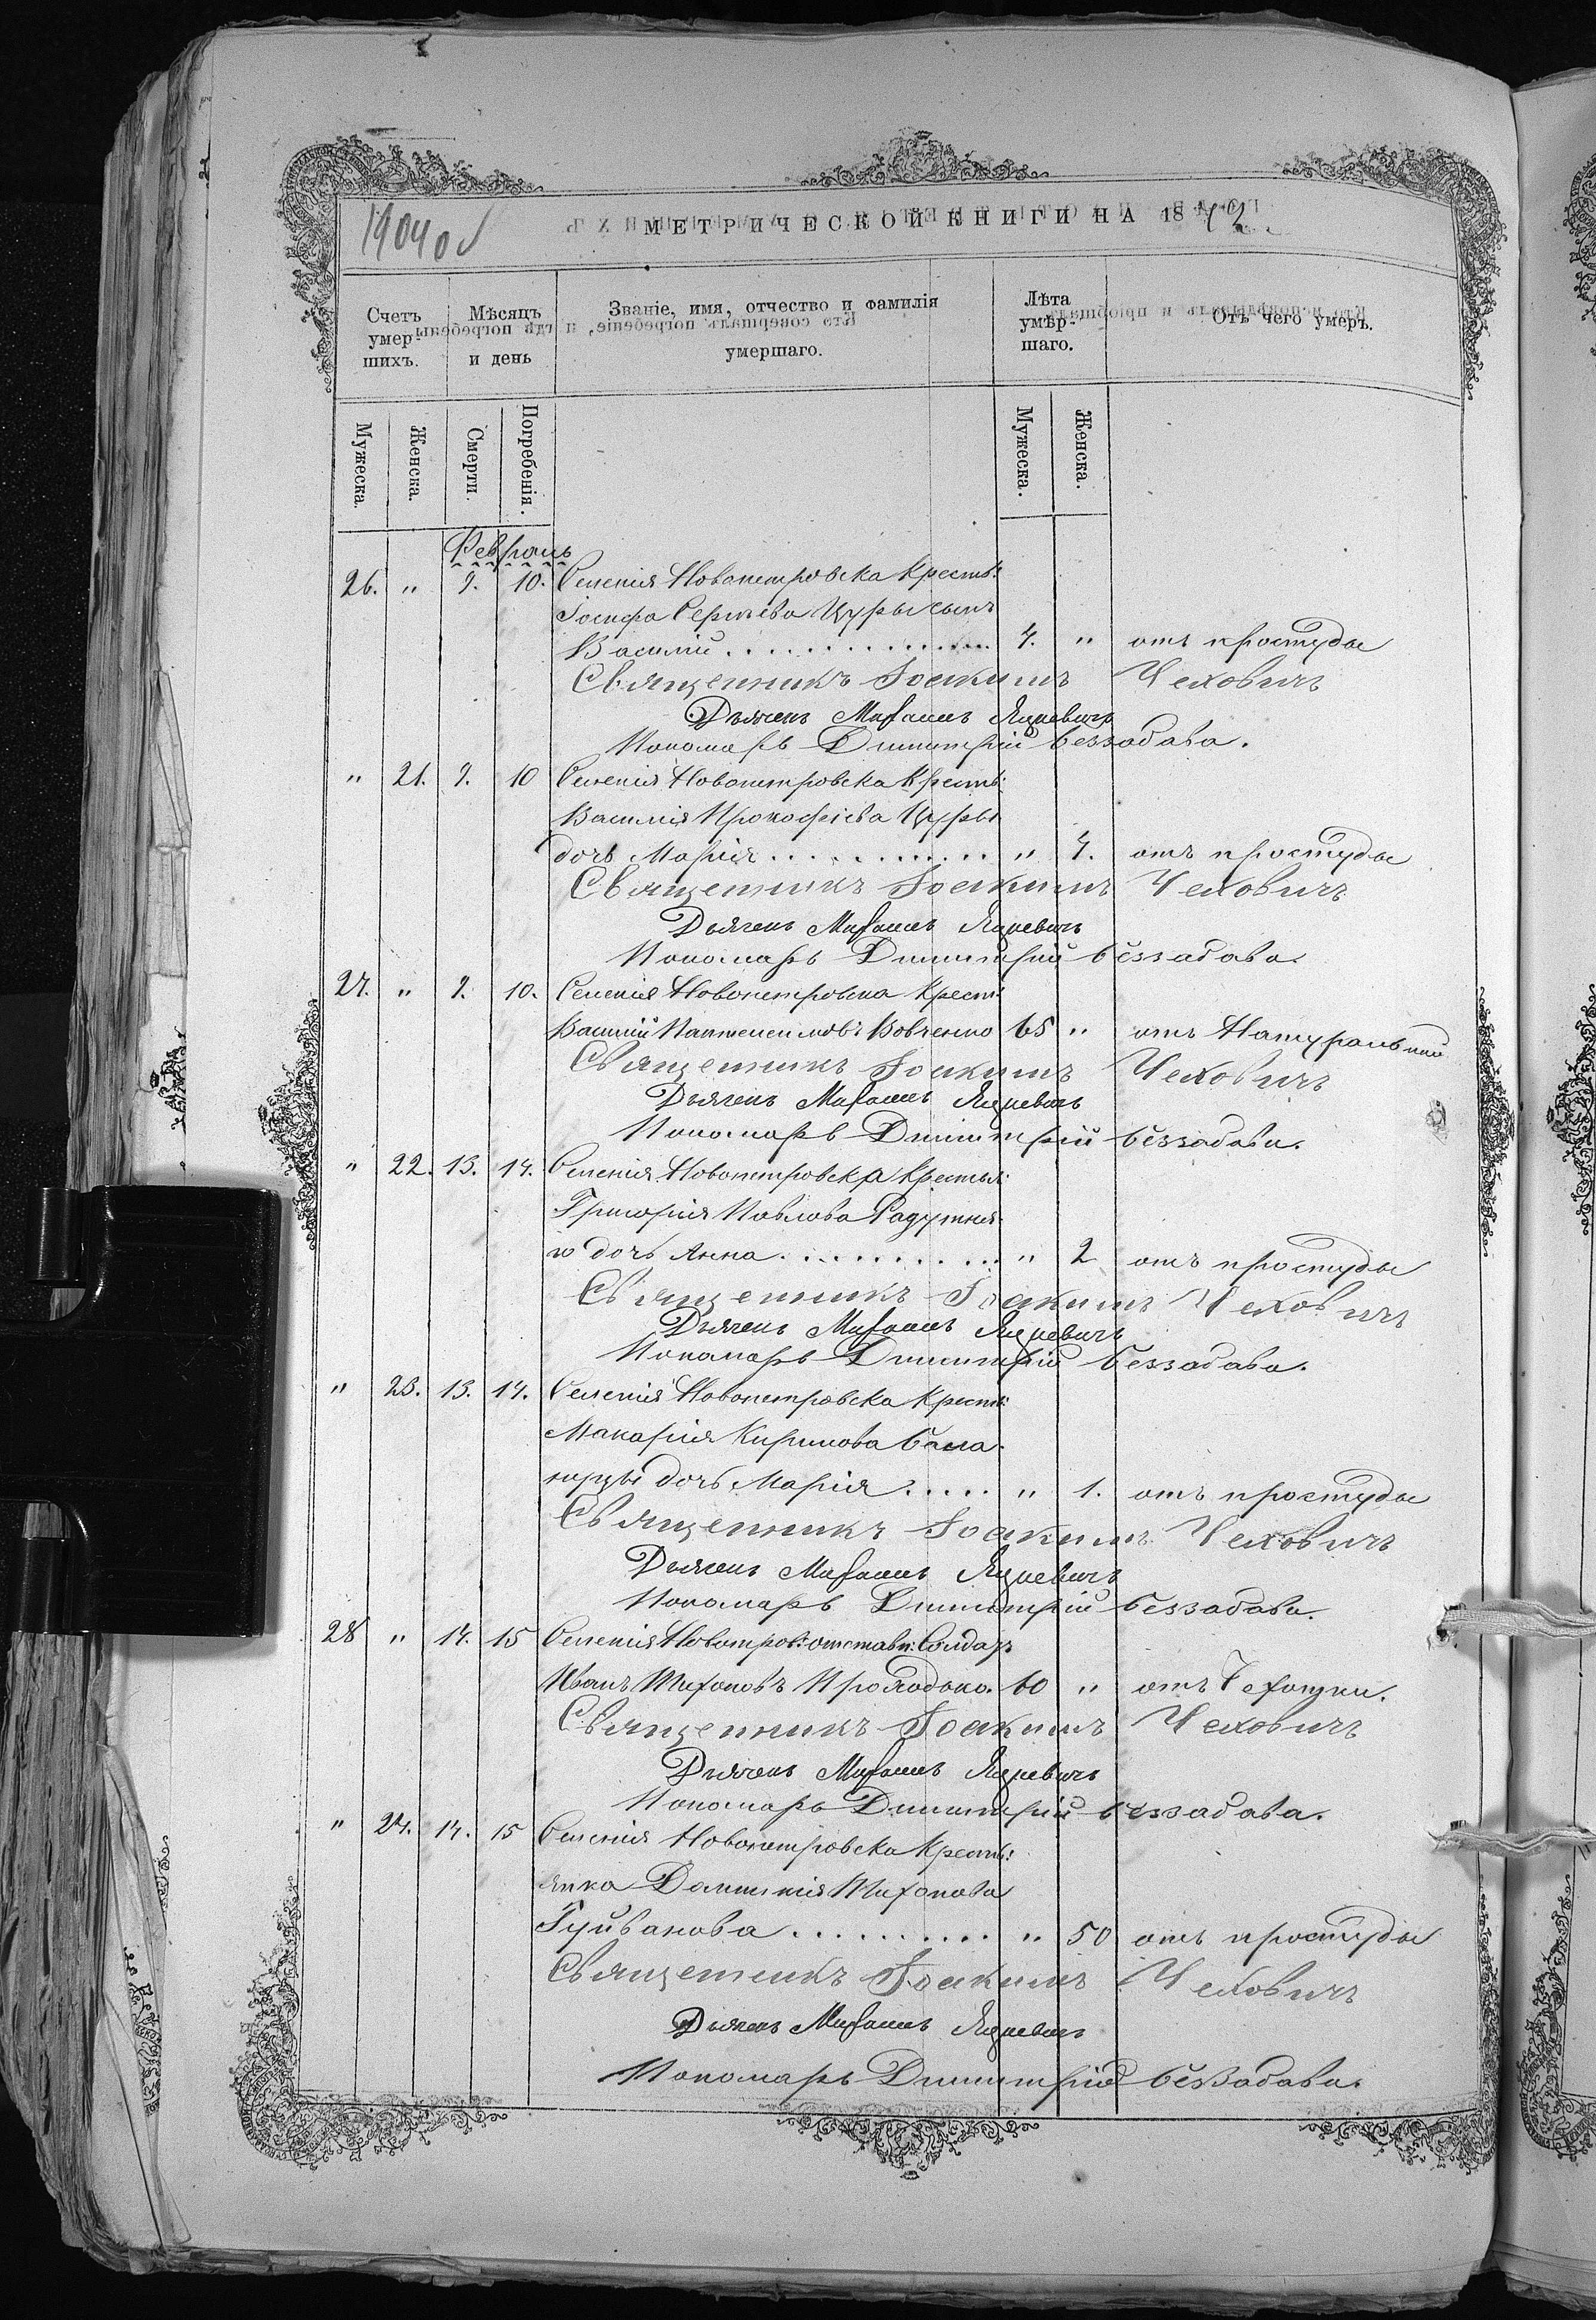 1904 об
МЕТРИЧЕСКОЙ КНИГИ НА 1872
Счетъ умер-шихъ.
Мѣсяцъ и день
Званіе, имя, отчество и фамилія умершаго.
Лѣта умѣр-шаго.
Отъ чего умеръ.
Мужеска.
Женска.
Смерти.
Погребенія.
Мужеска.
Женска.
Февраль
26. " 9. 10. Селенія Новопетровска Кресть:
Іосифа Сергѣева Цуры сынъ
Василій 4. " отъ простуды
Священникъ Іоакимъ Чехович
Дьячекъ Михаилъ Яцкевичъ
Пономарь Димитрій Беззабава.
" 21. 9. 10 Селенія Новопетровска Кресть:
Василія Прокофіева Цуры
дочь Марія " 4. отъ простуды
Священникъ Іоакимъ Чеховичъ
Дьячекъ Михаилъ Яцкевичъ
Пономарь Димитрій Беззабава.
27. " 9. 10. Селенія Новопетровска Крест:
Василій Пантелеимовъ Вовченко 65 " отъ Натуральной
Священникъ Іоакимъ Чеховичъ
Дьячекъ Михаилъ Яцкевичъ
Пономарь Димитрій Беззабава.
" 22. 13. 14. Селенія Новопетровска Крестья:
Григорія Павлова
дочь Анна " 2 отъ простуды
Священникъ Іоакимъ Чеховичъ
Дьячекъ Михаилъ Яцкевичъ
Пономарь Димитрій Беззабава.
" 23. 13. 14. Селенія Новопетровска Кресть:
Макарія Кирилова
дочь Марія " 1. отъ простуды
Священникъ Іоакимъ Чеховичъ
Дьячекъ Михаилъ Яцкевичъ
Пономарь Димитрій Беззабава.
28 " 14. 15 Селенія отставн: Солдатъ
Иванъ Тихоновъ 60 " отъ
Священникъ Іоакимъ Чеховичъ
Дьячекъ Михаилъ Яцкевичъ
Пономарь Димитрій Беззабава.
" 24. 14. 15 Селенія Новопетровска Кресть:
янка Домникія Тихонова
Гуйванова " 50 отъ простуды
Священникъ Іоакимъ Чеховичъ
Дьячекъ Михаилъ Яцкевичъ
Пономарь Димитрій Беззабава.